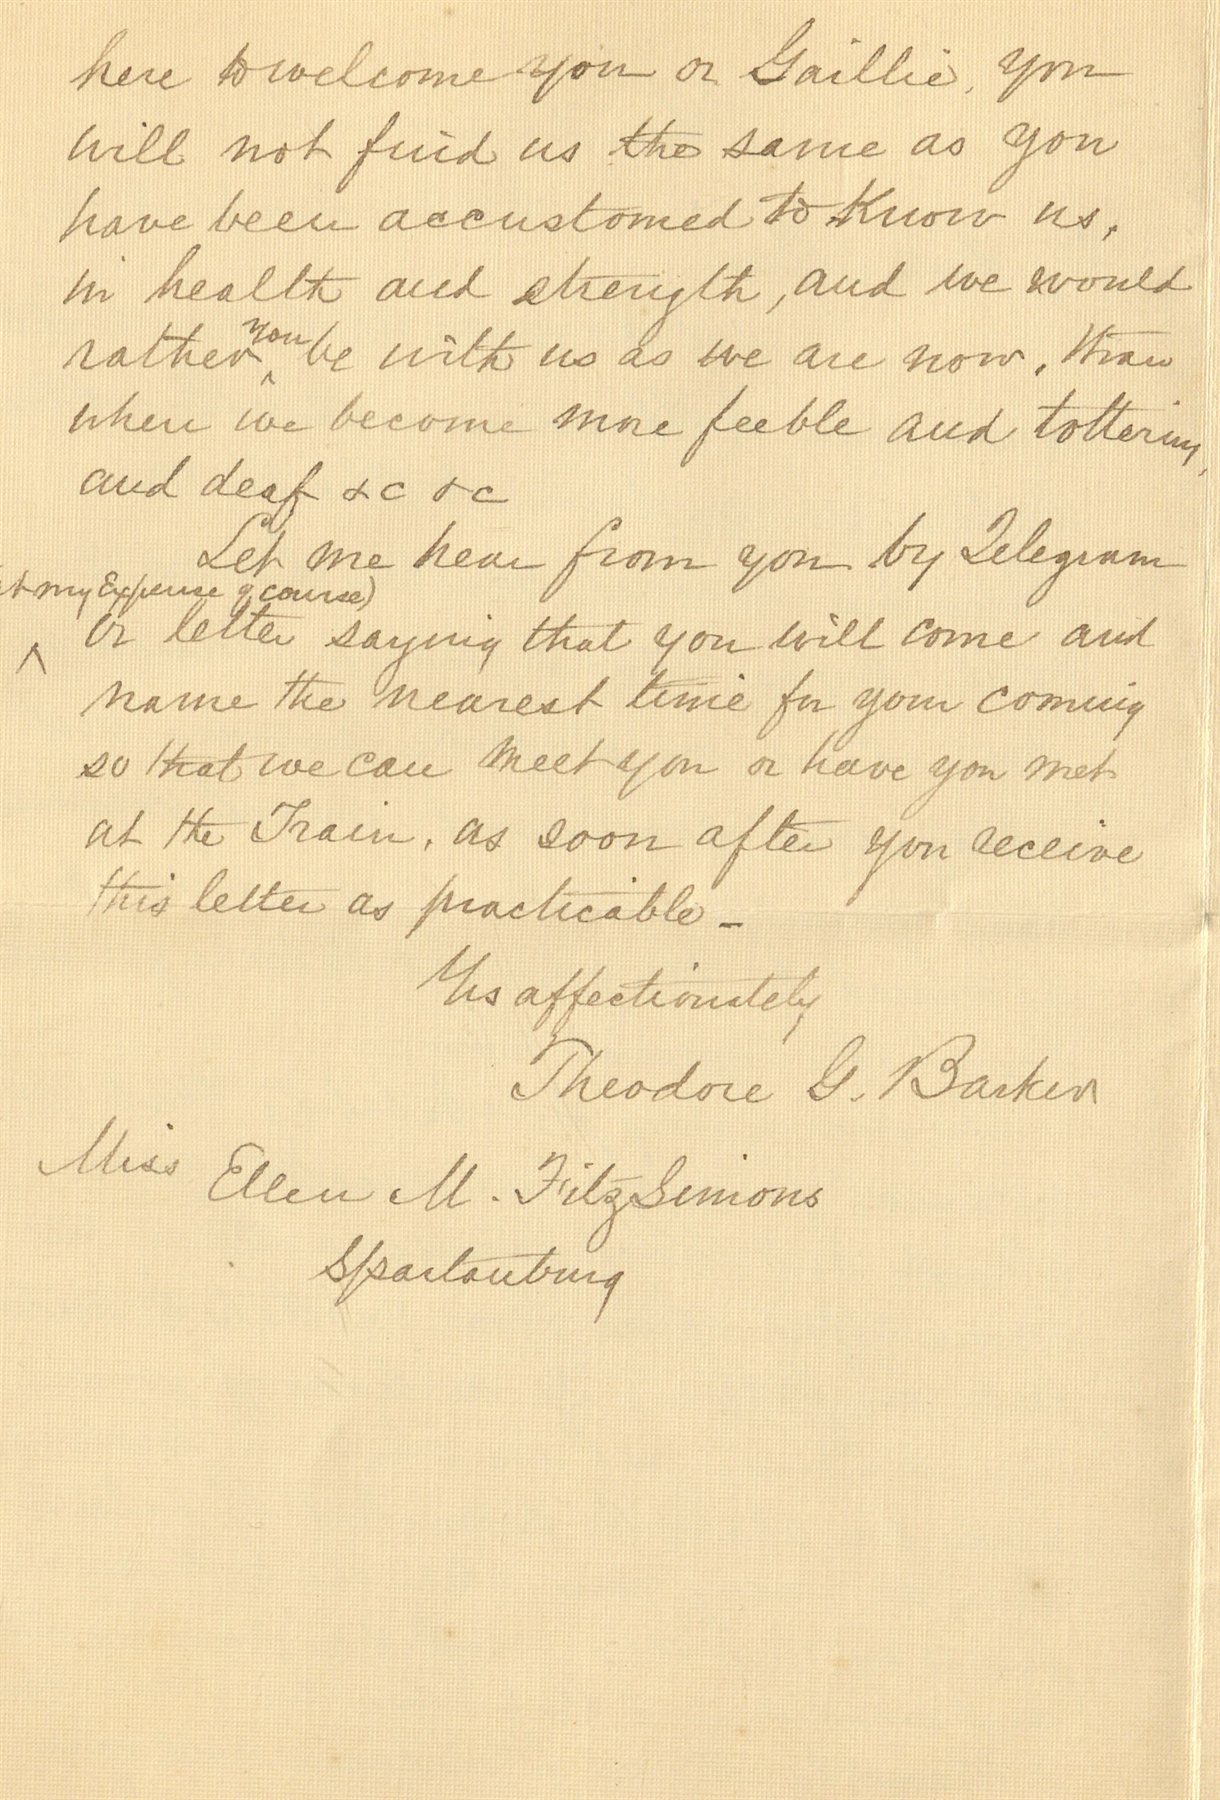 here to welcome you or Gaillie, you
will not find us the same as you
have been accustomed to know us,
in health and strength, and we would
rather you be with us as we are now, than
when we become more feeble and tottering,
and deaf &c &c
Let me hear from you by Telegram
(at my Expense of course)
or letter saying that you will come and
name the nearest time for your coming
so that we can meet you or have you met
at the Train, as soon after you receive
this letter as practicable_
Yrs affectionately
Theodore G. Barker
Miss Ellen M. FitzSimons
Spartanburg